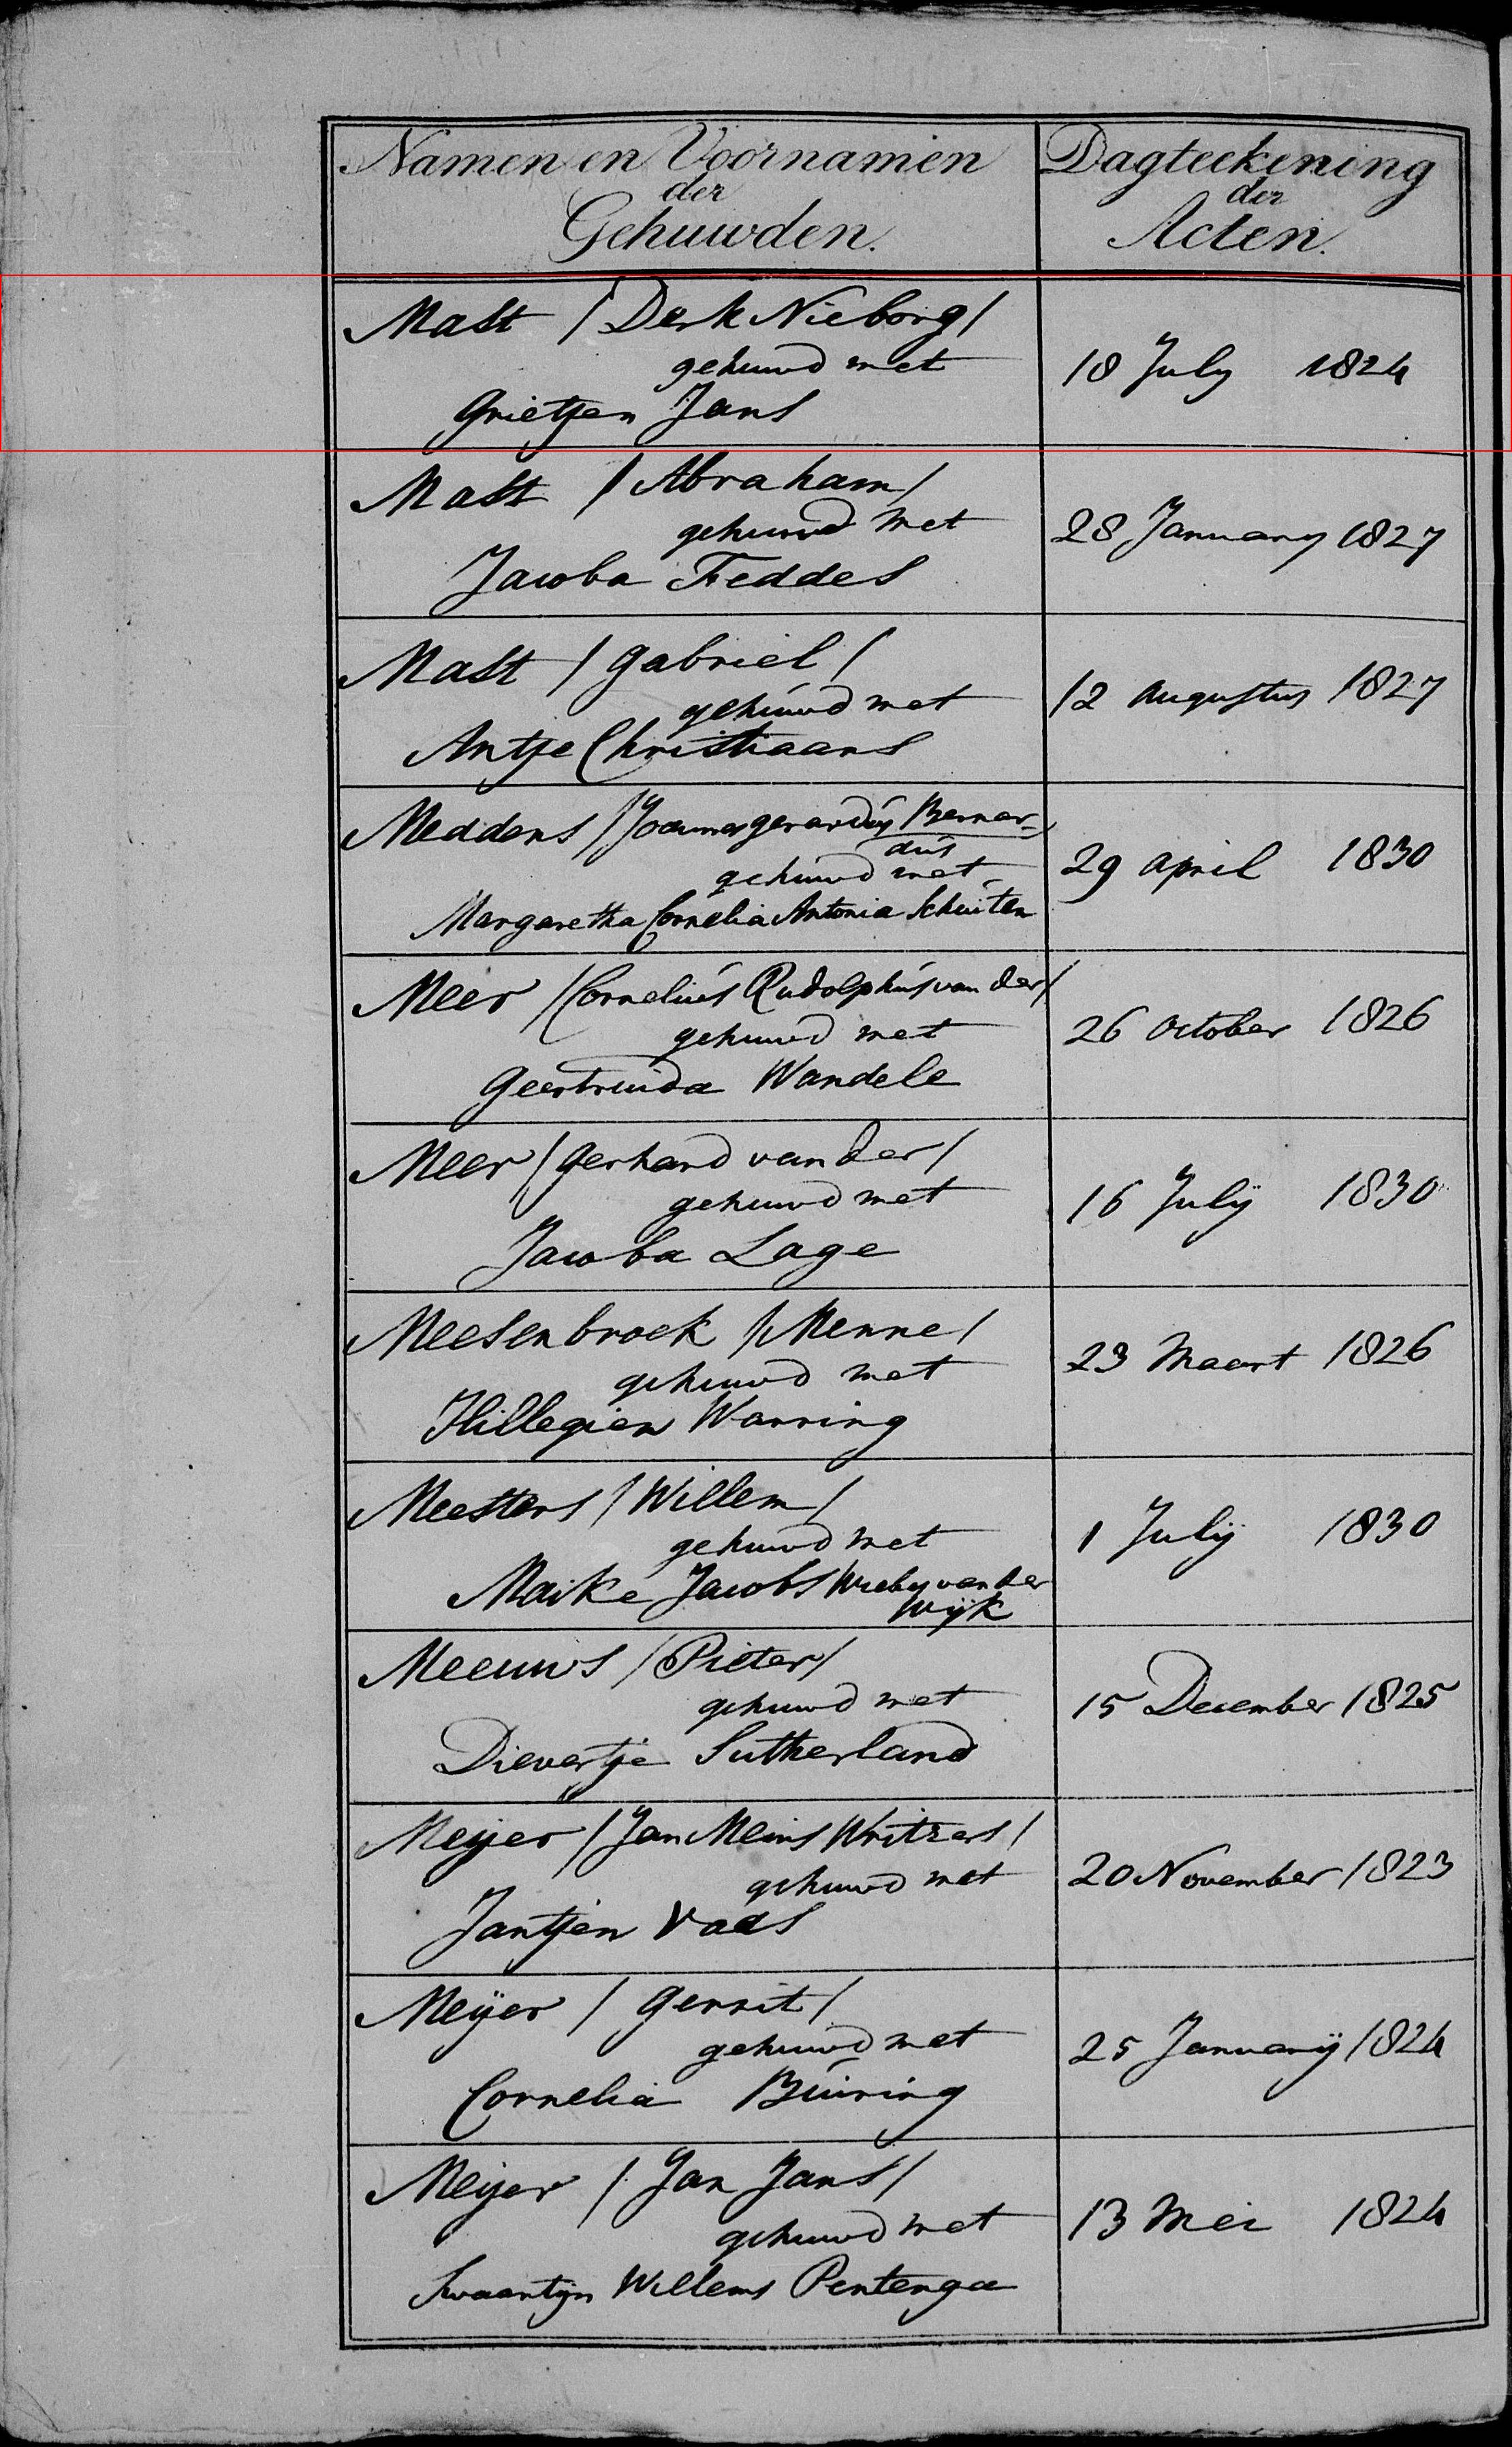 Namen en Voornamen
der
Gehuwden.
Dagteekening
der
Acten.
Mast / Derk Nieborg /
gehuwd met
Grietjen Jans
18 July 1824
Mast / Abraham /
gehuwd met
Jacoba Feddes
28 January 1827
Mast / Gabriel /
gehuwd met
Antje Christiaans
12 Augustus 1827
Meddens / Joannes Gerardus Bernar-
dus
gehuwd met
Margaretha Cornelia Antonia Schuiten
29 April 1830
Meer / Cornelius Rudolphus van der /
gehuwd met
Geertruida Wandele
26 October 1826
Meer / Gerhard van der /
gehuwd met
Jacoba Lage
16 Julij 1830
Meesenbroek / Menne /
gehuwd met
Hillegien Warring
23 Maart 1826
Meesters / Willem /
gehuwd met
Maike Jacobs van der
Wijk
1 Julij 1830
Meeuws / Pieter /
gehuwd met
Dievertje Sutherland
15 December 1825
Meijer / Jan Meins /
gehuwd met
Jantjen Vaas
20 November 1823
Meijer / Gerrit /
gehuwd met
Cornelia Buiring
25 Januarij 1824
Meijer / Jan Jans /
gehuwd met
Swaantjen Willems Pentenga
13 Mei 1824